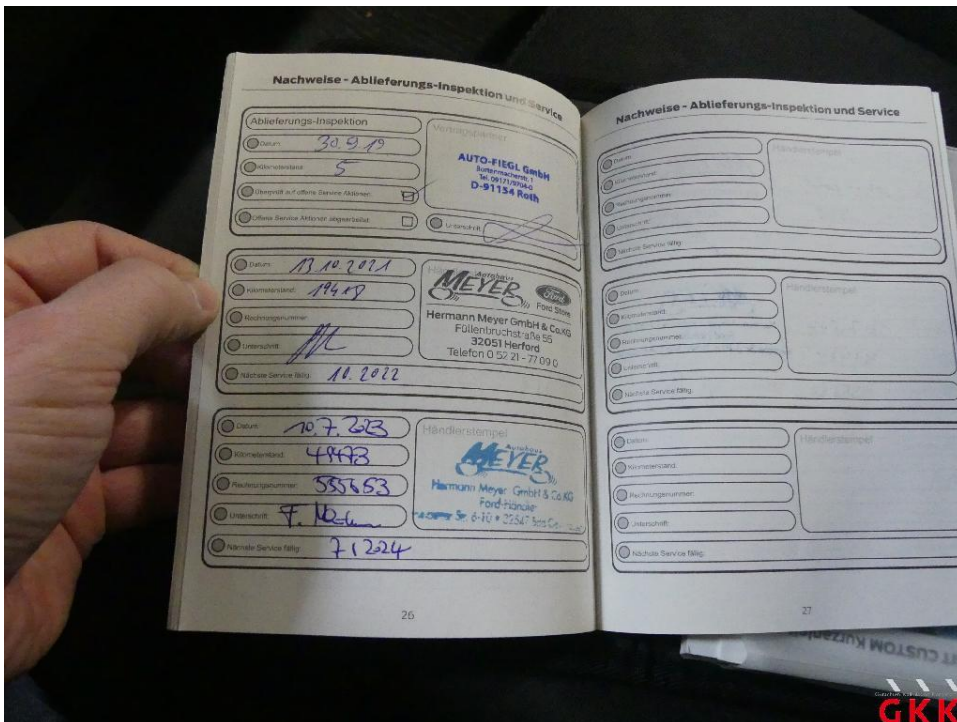 Nachweise - Ablieferungs-Inspektion und Service
Ablieferungs-Inspektion
Datum: 30.9.19
Kilometerstand: 5
Überprüft auf offene Service Aktionen:
Offene Service Aktionen abgearbeitet:
Vertragspartner
AUTO-FIEGL GmbH
Tel. 09171/9704-0
D-91154 Roth
Unterschrift:
Datum: 13.10.2021
Kilometerstand:
Rechnungsnummer:
Unterschrift:
Nächste Service fällig: 10.2022
Autohaus
MEYER
Ford
Ford Store
Hermann Meyer GmbH & Co.KG
Füllenbruchstraße 55
32051 Herford
Telefon 0 52 21 - 77 09 0
Datum: 10.7.2023
Kilometerstand: 49473
Rechnungsnummer: 555653
Unterschrift:
Nächste Service fällig: 7/2024
Händlerstempel
Autohaus
MEYER
Hermann Meyer GmbH & Co.KG
Ford-Händler
26
Nachweise - Ablieferungs-Inspektion und Service
Datum:
Kilometerstand:
Rechnungsnummer:
Unterschrift:
Nächste Service fällig:
Händlerstempel
Datum:
Kilometerstand:
Rechnungsnummer:
Unterschrift:
Nächste Service fällig:
Händlerstempel
Datum:
Kilometerstand:
Rechnungsnummer:
Unterschrift:
Nächste Service fällig:
Händlerstempel
27
CUSTOM
GKK